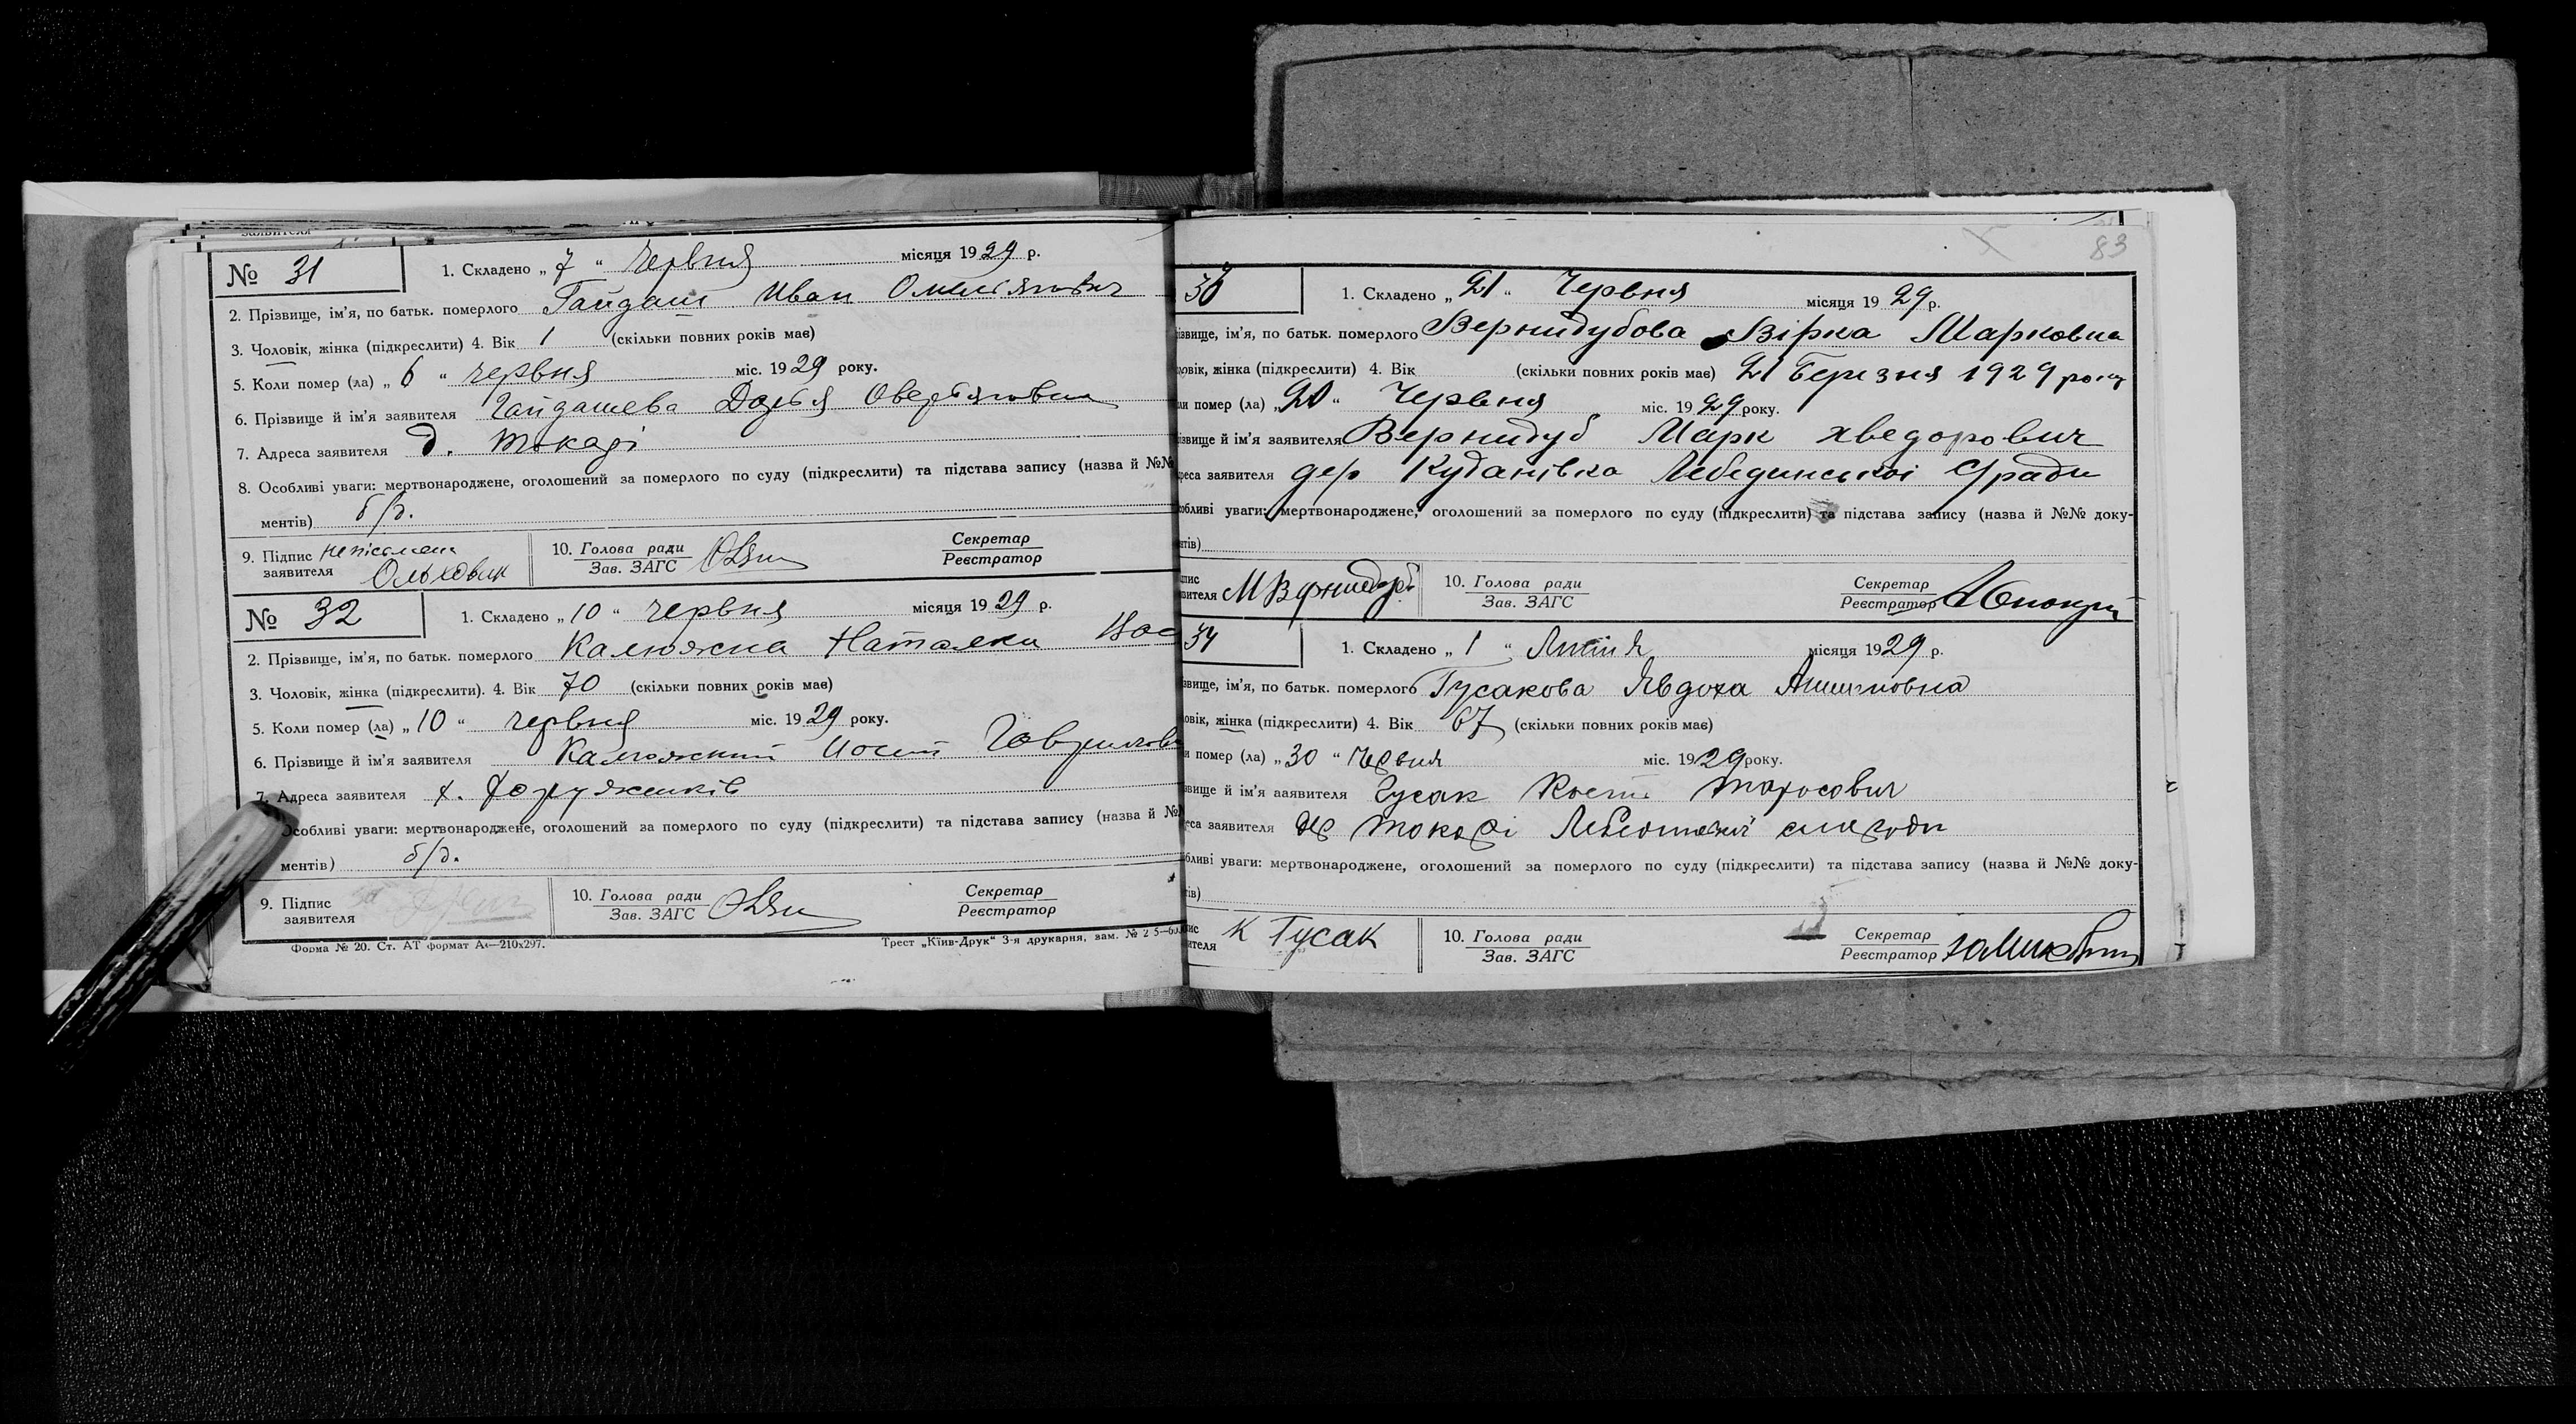 заявителя
№ 31
1. Складено „ 7 “ червня місяця 1929 р.
2. Прізвище, ім'я, по батьк. померлого Гайдаш Иван Омелiянович
3. Чоловік, жінка (підкреслити) 4. Вік 1 (скільки повних років має)
5. Коли помер (ла) „ 6 “ червня міс. 1929 року.
6. Прізвище й ім'я заявителя Гайдашева Дарья
7. Адреса заявителя д. Токарі
8. Особливі уваги: мертвонароджене, оголошений за померлого по суду (підкреслити) та підстава запису (назва й №№
ментів) б/д.
9. Підпис заявителя Ольховик
10. Голова ради Зав. ЗАГС
Секретар Реєстратор
№ 32
1. Складено „ 10 “ червня місяця 1929 р.
2. Прізвище, ім'я, по батьк. померлого Калюжна Наталка
3. Чоловік, жінка (підкреслити). 4. Вік 70 (скільки повних років має)
5. Коли помер (ла) „ 10 “ червня міс. 1929 року.
6. Прізвище й ім'я заявителя Калюжний
7. Адреса заявителя х.
Особливі уваги: мертвонароджене, оголошений за померлого по суду (підкреслити) та підстава запису (назва й №
ментів) б/д.
9. Підпис заявителя
10. Голова ради Зав. ЗАГС
Секретар Реєстратор
Форма № 20. Ст. АТ формат А4—210х297.
Трест „Київ-Друк“ 3-я друкарня, зам. №
83
1. Складено „ 21 “ Червня місяця 1929 р.
ізвище, ім'я, по батьк. померлого Вернидубова Вірка Марковна
овік, жінка (підкреслити) 4. Вік (скільки повних років має) 21 Березня 1929 року
ли помер (ла) „ 20 “ Червня міс. 1929 року.
ізвище й ім'я заявителя Вернидуб Марк хведорович
реса заявителя дер Кудані​вка Лебединської с/ради
обливі уваги: мертвонароджене, оголошений за померлого по суду (підкреслити) та підстава запису (назва й №№ доку-
нтів)
пис вителя М Вернидуб
10. Голова ради Зав. ЗАГС
Секретар Реєстратор
34
1. Складено „ 1 “ Липня місяця 1929 р.
звище, ім'я, по батьк. померлого Гусакова Явдоха
овік, жінка (підкреслити) 4. Вік 67 (скільки повних років має)
и помер (ла) „ 30 “ Червня міс. 1929 року.
звище й ім'я ааявителя Гусак Кость Тарасович
еса заявителя дер Токарі
бливі уваги: мертвонароджене, оголошений за померлого по суду (підкреслити) та підстава запису (назва й №№ доку-
тів)
пис ителя К Гусак
10. Голова ради Зав. ЗАГС
Секретар Реєстратор